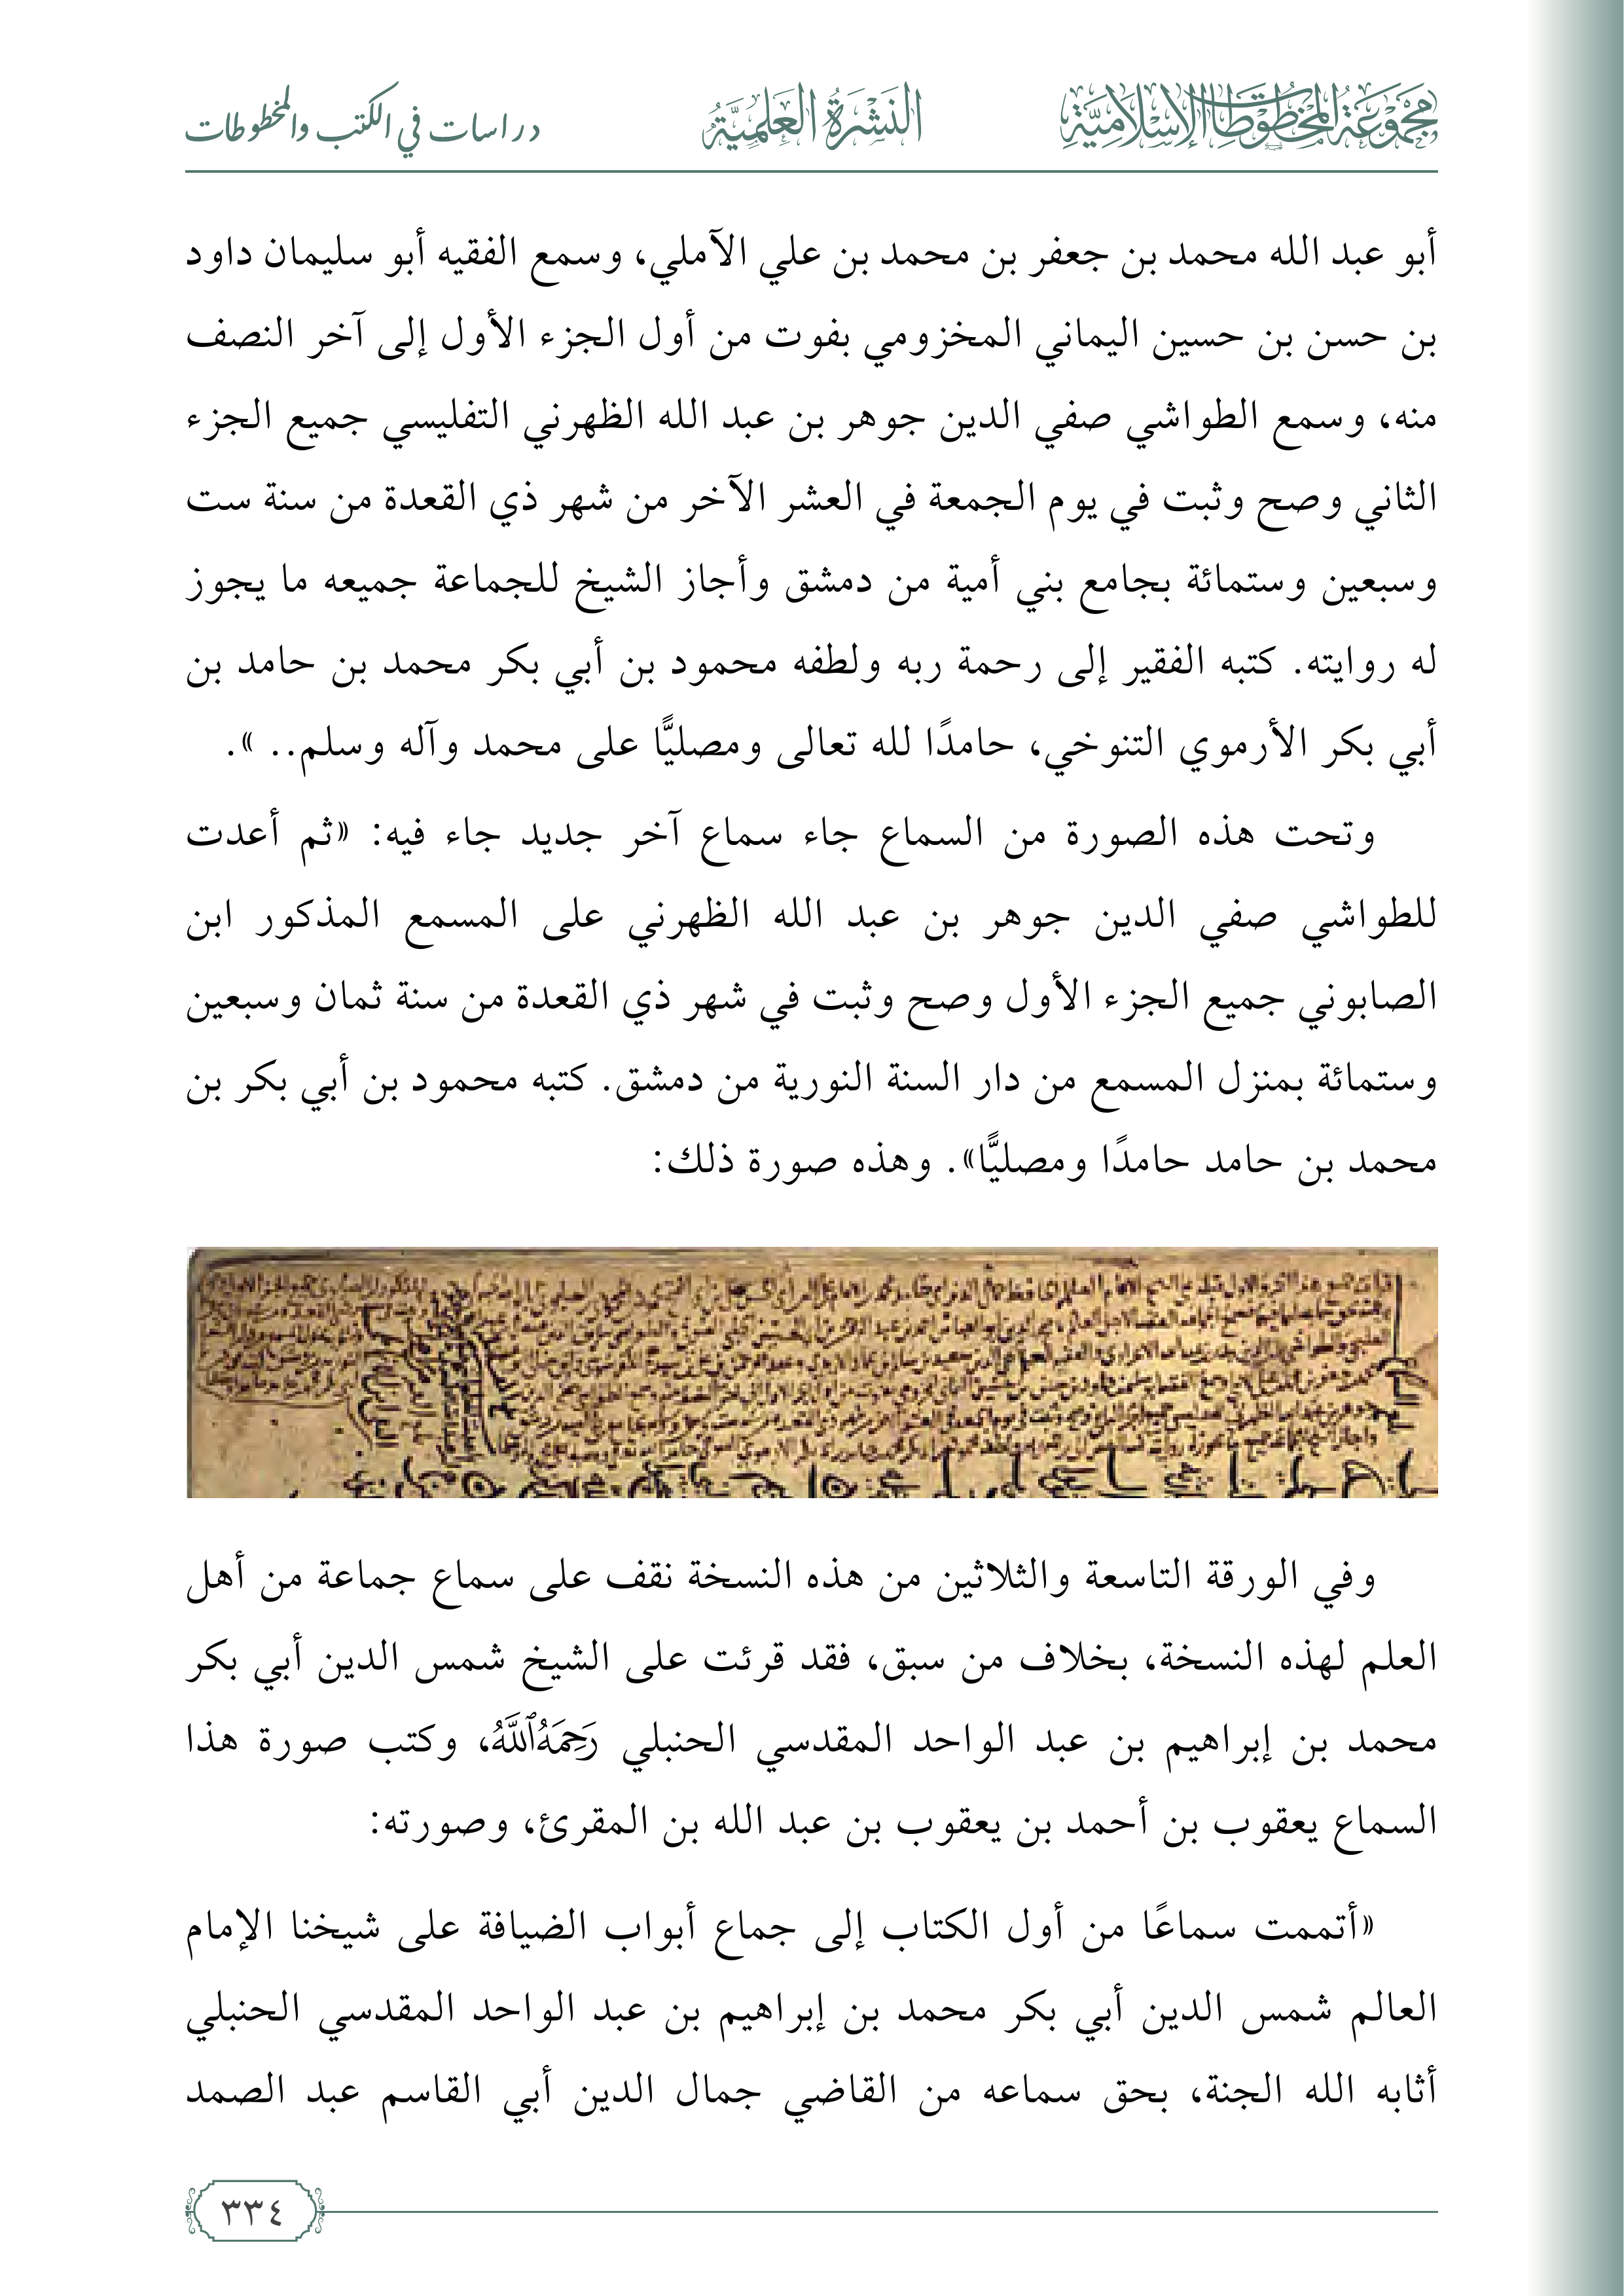 مجموعة المخطوطات الإسلامية
النَّشْرَةُ العِلْمِيَّةُ
دراسات في الكتب والمخطوطات
أبو عبد الله محمد بن جعفر بن محمد بن علي الآملي، وسمع الفقيه أبو سليمان داود
بن حسن بن حسين اليماني المخزومي بفوت من أول الجزء الأول إلى آخر النصف
منه، وسمع الطواشي صفي الدين جوهر بن عبد الله الظهرني التفليسي جميع الجزء
الثاني وصح وثبت في يوم الجمعة في العشر الآخر من شهر ذي القعدة من سنة ست
وسبعين وستمائة بجامع بني أمية من دمشق وأجاز الشيخ للجماعة جميعه ما يجوز
له روايته. كتبه الفقير إلى رحمة ربه ولطفه محمود بن أبي بكر محمد بن حامد بن
أبي بكر الأرموي التنوخي، حامدًا لله تعالى ومصليًّا على محمد وآله وسلم.. ».
وتحت هذه الصورة من السماع جاء سماع آخر جديد جاء فيه: «ثم أعدت
للطواشي صفي الدين جوهر بن عبد الله الظهرني على المسمع المذكور ابن
الصابوني جميع الجزء الأول وصح وثبت في شهر ذي القعدة من سنة ثمان وسبعين
وستمائة بمنزل المسمع من دار السنة النورية من دمشق. كتبه محمود بن أبي بكر بن
محمد بن حامد حامدًا ومصليًّا». وهذه صورة ذلك:
وفي الورقة التاسعة والثلاثين من هذه النسخة نقف على سماع جماعة من أهل
العلم لهذه النسخة، بخلاف من سبق، فقد قرئت على الشيخ شمس الدين أبي بكر
محمد بن إبراهيم بن عبد الواحد المقدسي الحنبلي رَحِمَهُ ٱللَّهُ، وكتب صورة هذا
السماع يعقوب بن أحمد بن يعقوب بن عبد الله بن المقرئ، وصورته:
«أتممت سماعًا من أول الكتاب إلى جماع أبواب الضيافة على شيخنا الإمام
العالم شمس الدين أبي بكر محمد بن إبراهيم بن عبد الواحد المقدسي الحنبلي
أثابه الله الجنة، بحق سماعه من القاضي جمال الدين أبي القاسم عبد الصمد
٣٣٤